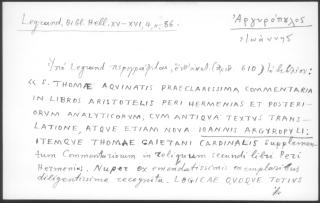 Legrand, Bibl. Hell. XV-XVI, 4, σ. 86.
Ἀργυρόπουλος
Ἰωάννης
Ὑπὸ Legrand περιγράφεται, (ἀριθ. 610)
« S. THOMÆ AQUINATIS PRAECLARISSIMA COMMENTARIA
IN LIBROS ARISTOTELIS PERI HERMENIAS ET POSTERI-
ORUM ANALYTICORUM, CUM ANTIQUA TEXTUS TRANS-
LATIONE, ATQUE ETIAM NOVA IOANNIS ARGYROPYLI:
ITEMQUE THOMAE CAIETANI CARDINALIS supplemen-
tum Commentariorum in reliquum secundi libri Peri
Hermenias. Nuper ex emendatissimis exemplaribus
diligentissime recognita. LOGICAE QUOQUE TOTIUS